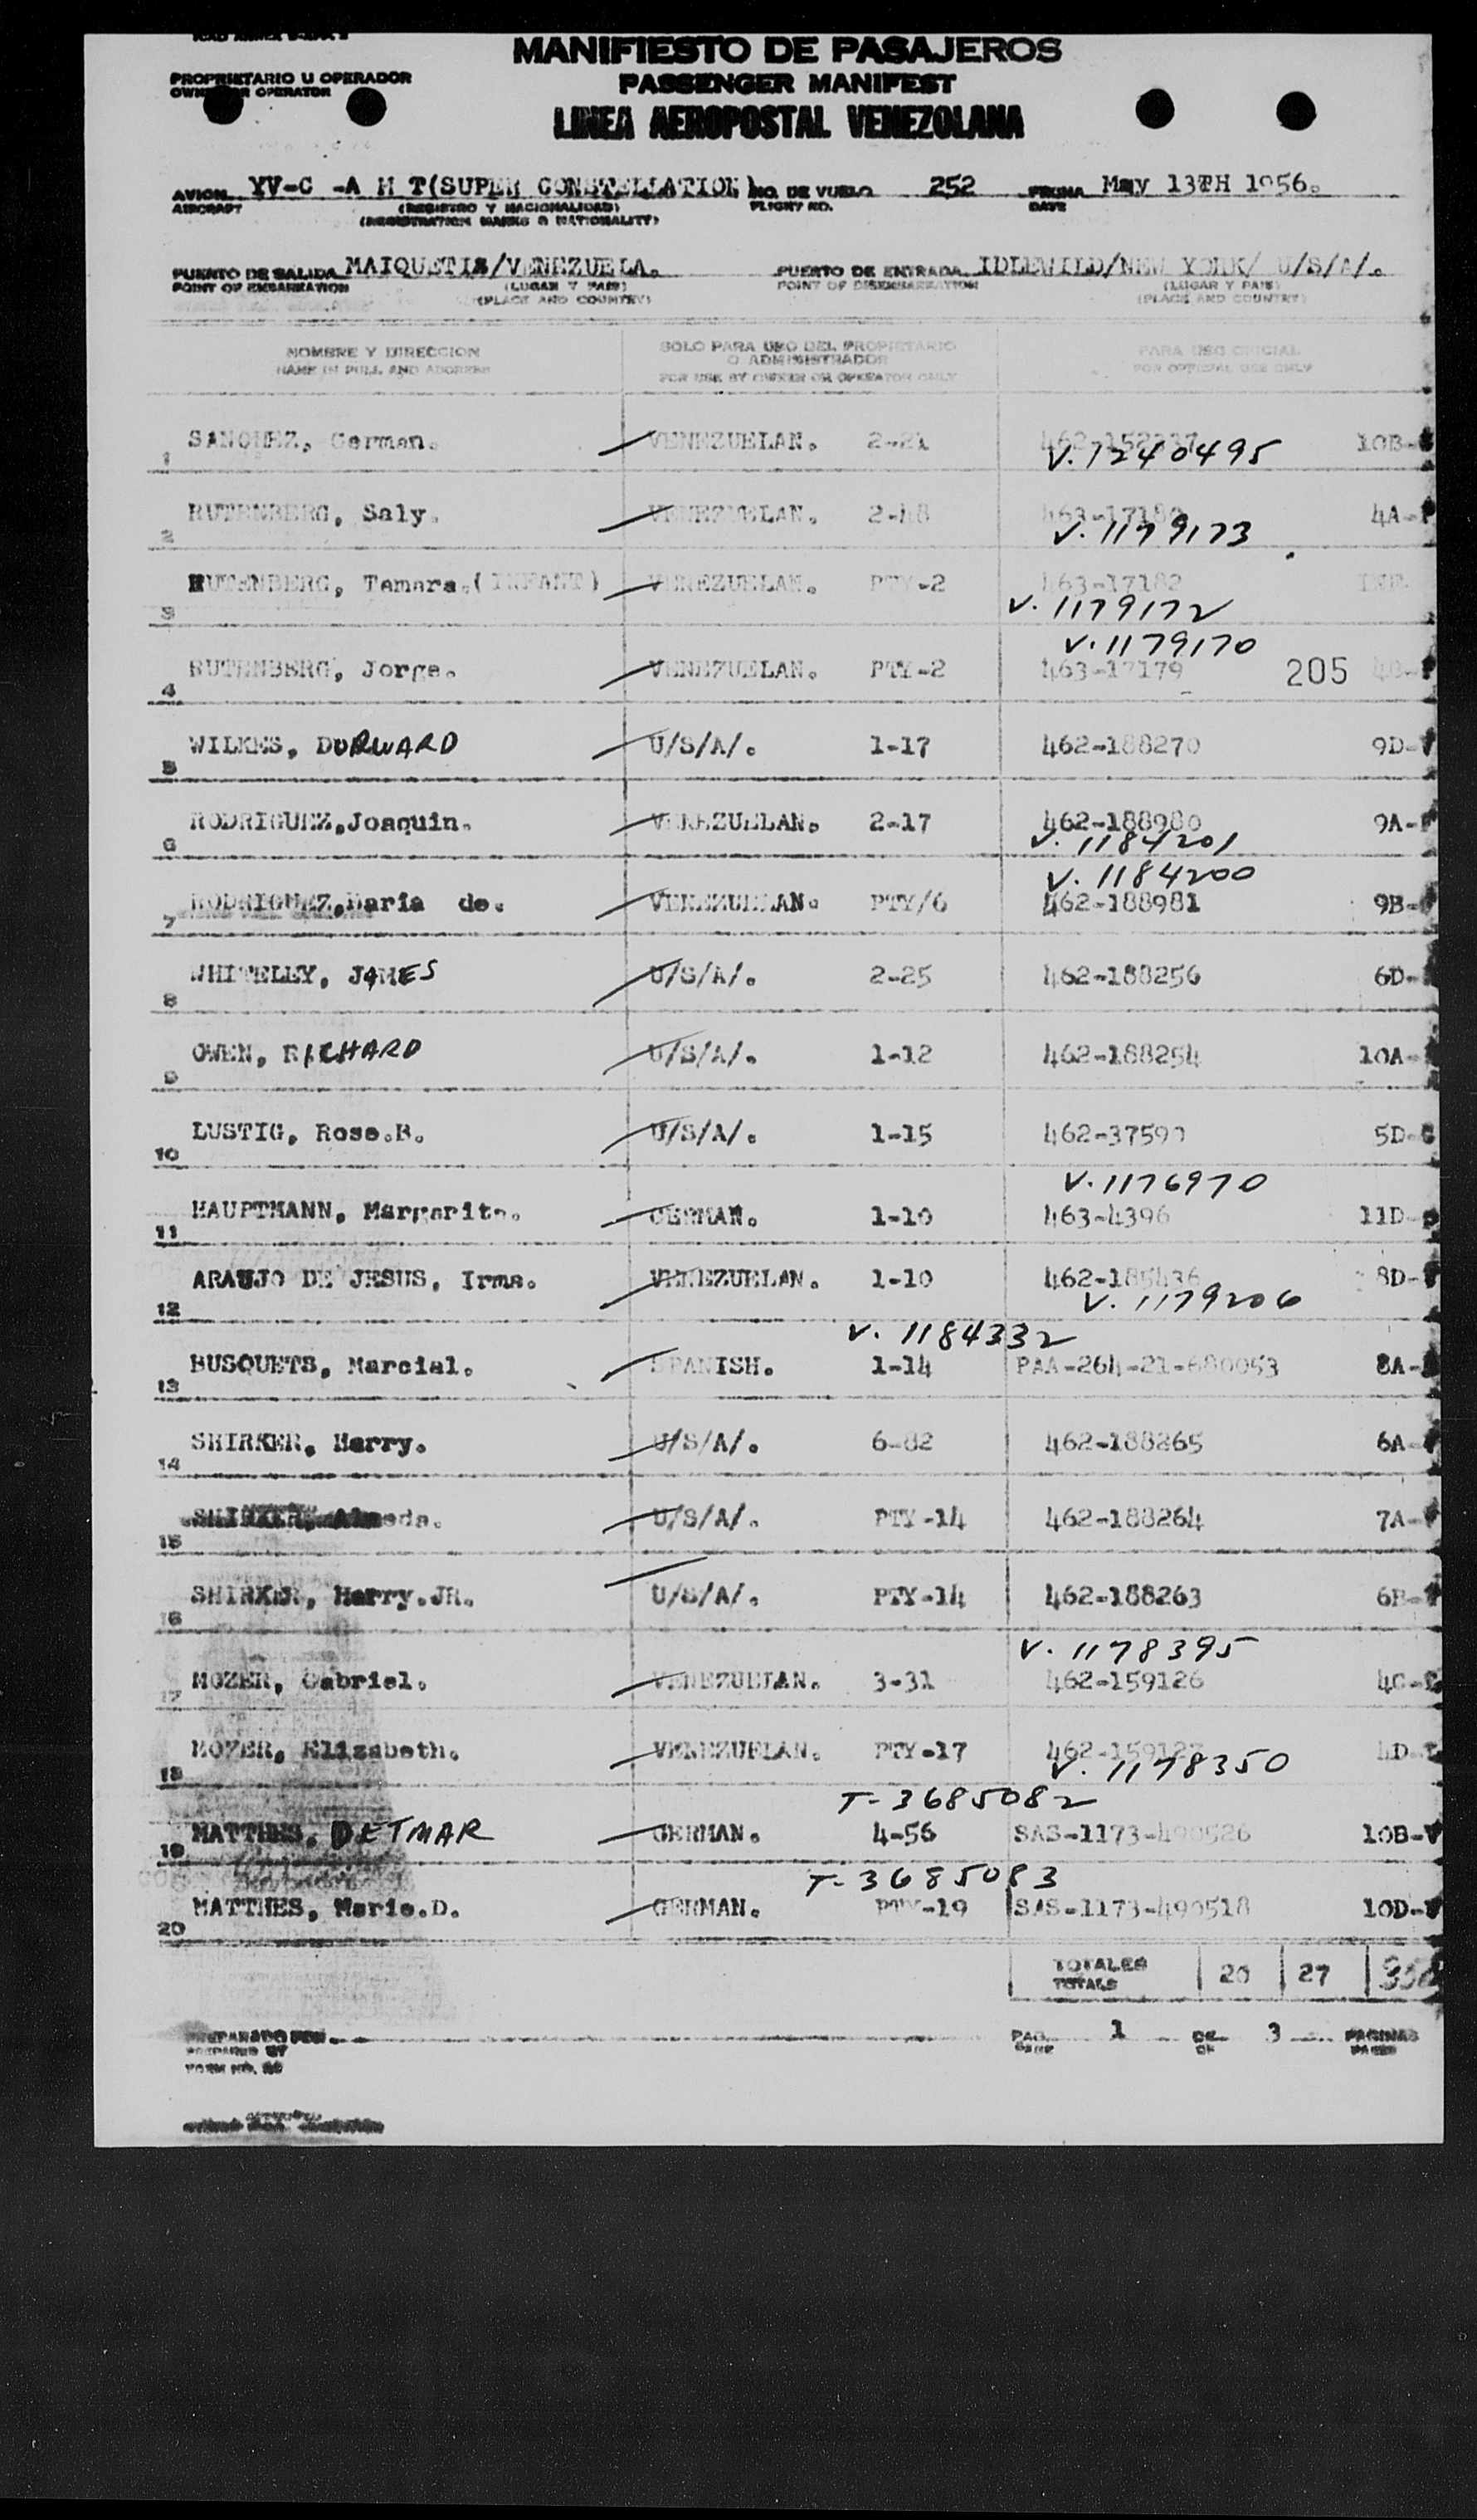 MANIFIESTO DE PASAJEROS
PROPRIETARIO U OPERADOR
PASSENGER MANIFEST
OWNER OR OPERATOR
LINEA AEROPOSTAL VENEZOLANA
AVION YV-C -A M T(SUPER CONSTELLATION) NO. DE VUELO 252 FECHA May 13TH 1956.
AIRCRAFT (REGISTRO Y NACIONALIDAD) FLIGHT NO. DATE
(REGISTRATION MARKS & NATIONALITY)
PUERTO DE SALIDA MAIQUETIA/VENEZUELA. PUERTO DE ENTRADA IDLEWILD/NEW YORK/ U/S/A/.
POINT OF EMBARKATION (LUGAR Y PAIS) POINT OF DISEMBARKATION (LUGAR Y PAIS)
(PLACE AND COUNTRY) (PLACE AND COUNTRY)
NOMBRE Y DIRECCION SOLO PARA USO DEL PROPIETARIO PARA USO OFICIAL
O ADMINISTRADOR
NAME IN FULL AND ADDRESS FOR USE BY OWNER OR OPERATOR ONLY FOR OFFICIAL USE ONLY
1 SANCHEZ, German. VENEZUELAN. 2-21 10B-
V. 1240495
2 RUTENBERG, Saly. VENEZUELAN. 2-48 4A-
V. 1179173
3 RUTENBERG, Tamara.(INFANT) VENEZUELAN. PTY-2 463-17182 INF.
V. 1179172
V. 1179170
4 RUTENBERG, Jorge. VENEZUELAN. PTY-2 463-17179 205
5 WILKES, DURWARD U/S/A/. 1-17 462-188270 9D-
6 RODRIGUEZ,Joaquin. VENEZUELAN. 2-17 462-188980 9A-
V. 1184201
V. 1184200
7 RODRIGUEZ,Maria de. VENEZUELAN. PTY/6 462-188981 9B-
8 WHITELEY, JAMES U/S/A/. 2-25 462-188256 6D-
9 OWEN, RICHARD U/S/A/. 1-12 462-188254 10A-
10 LUSTIG, Rose.B. U/S/A/. 1-15 462-37590 5D-
V. 1176970
11 HAUPTMANN, Margarita. GERMAN. 1-10 463-4396 11D-
12 ARAUJO DE JESUS, Irma. VENEZUELAN. 1-10 8D-
V. 1179206
V. 1184332
13 BUSQUETS, Marcial. SPANISH. 1-14 PAA-264-21-680053 8A-
14 SHIRKER, Harry. U/S/A/. 6-82 462-188265 6A-
15 SHIRKER, Almeda. U/S/A/. PTY-14 462-188264 7A-
16 SHIRKER, Harry.JR. U/S/A/. PTY-14 462-188263 6B-
V. 1178395
17 MOZER, Gabriel. VENEZUELAN. 3-31 462-159126 4C-
18 MOZER, Elizabeth. VENEZUELAN. PTY-17 4D-
V. 1178350
T-3685082
19 MATTHES, DETMAR GERMAN. 4-56 SAS-1173-490526 10B-V
T-3685083
20 MATTHES, Marie.D. GERMAN. PTY-19 SAS-1173-490518 10D-
TOTALES 20 27
TOTALS
PREPARADO POR PAG. 1 DE 3 PAGINAS
PREPARED BY PAGE OF PAGES
FORM NO.